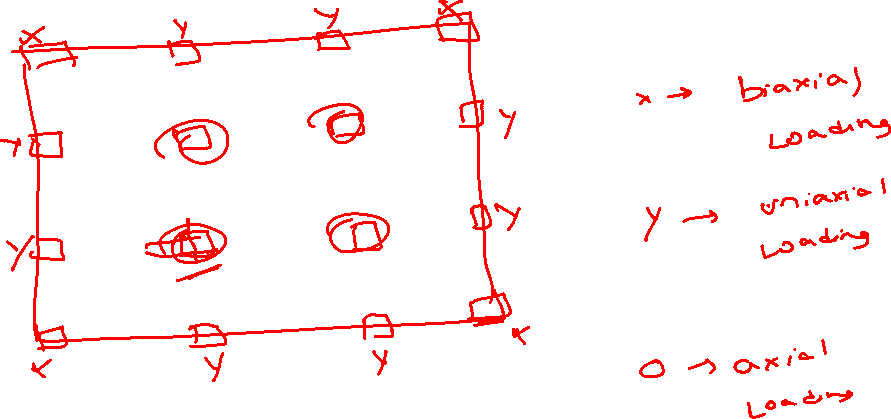 x y y x
y y
y y
x y y x
x → biaxial
Loading
y → uniaxial
Loading
O → axial
Loading